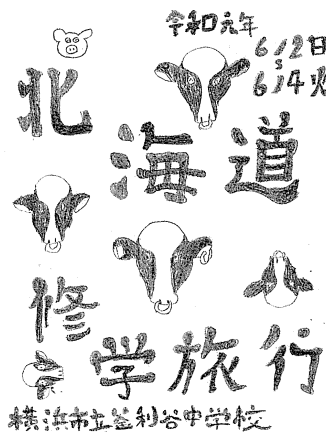 令和元年
6/2日
〜
6/4火
北海道
修学旅行
横浜市立釜利谷中学校